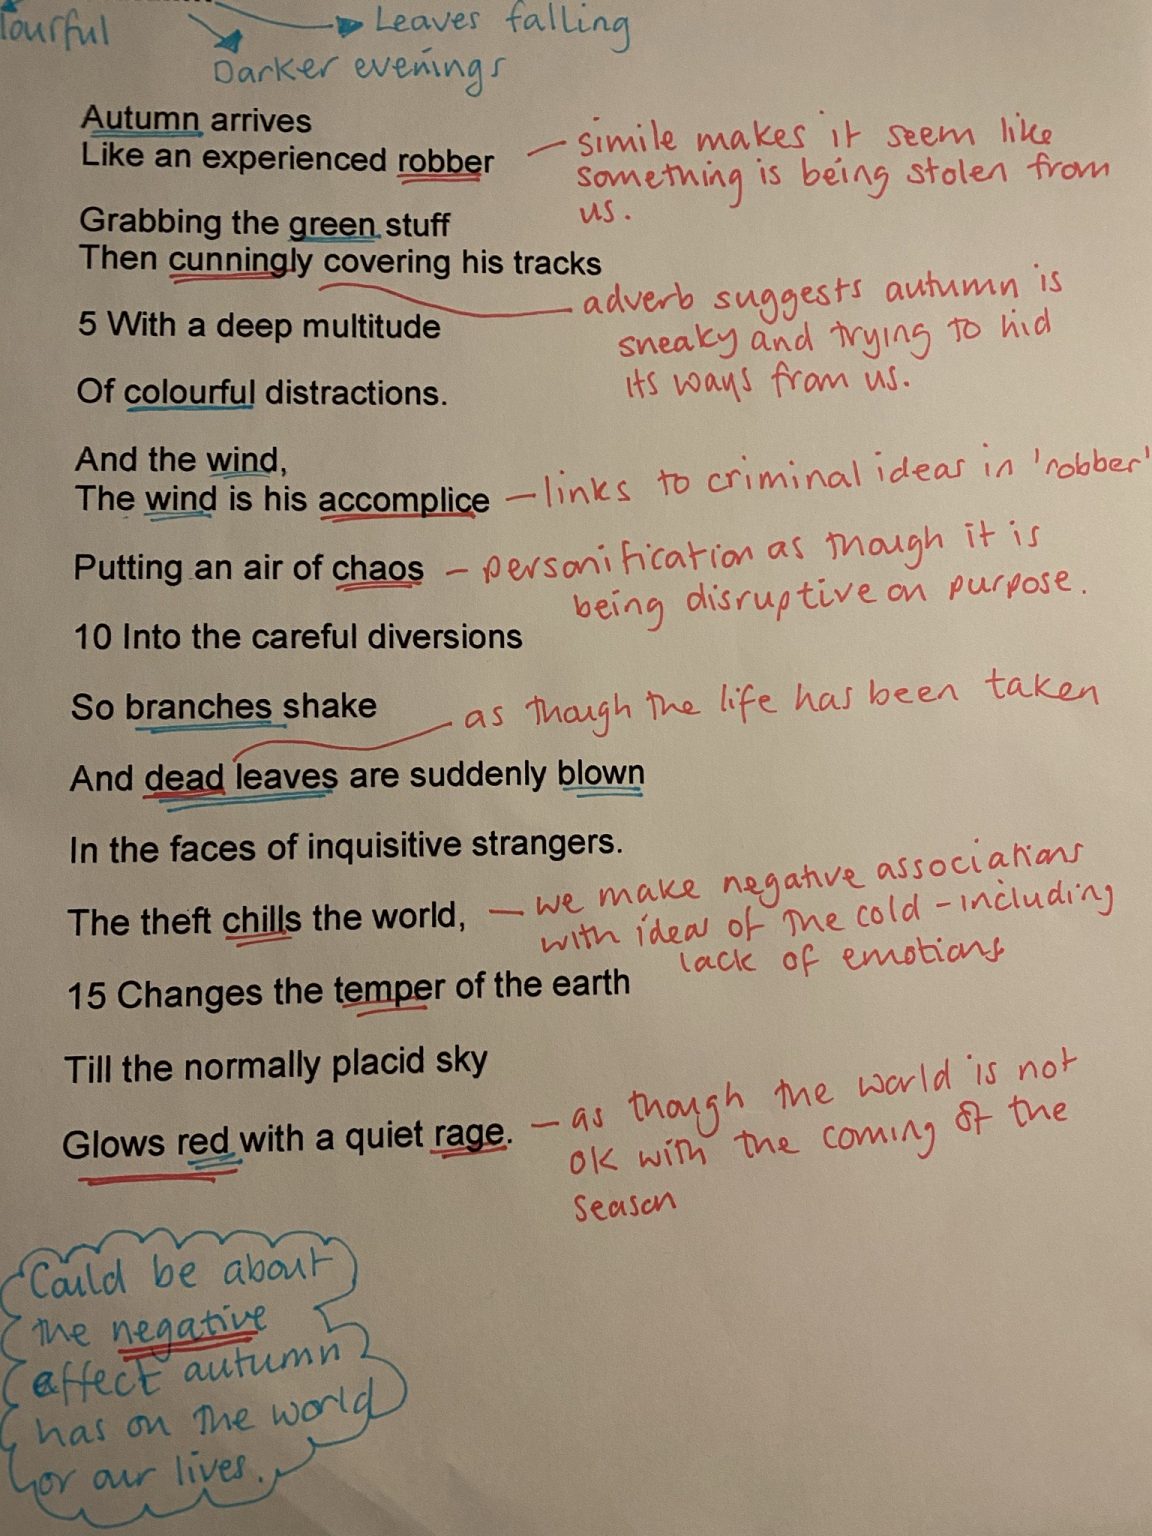 lourful
Leaves falling
Darker evenings
Autumn arrives
Like an experienced robber
– simile makes it seem like
something is being stolen from
us.
Grabbing the green stuff
Then cunningly covering his tracks
adverb suggests autumn is
sneaky and trying to hid
its ways from us.
5 With a deep multitude
Of colourful distractions.
And the wind,
The wind is his accomplice
– links to criminal ideas in 'robber'
Putting an air of chaos
– personification as though it is
being disruptive on purpose.
10 Into the careful diversions
So branches shake
as though the life has been taken
And dead leaves are suddenly blown
In the faces of inquisitive strangers.
The theft chills the world,
– we make negative associations
with ideas of the cold – including
lack of emotions
15 Changes the temper of the earth
Till the normally placid sky
Glows red with a quiet rage.
– as though the world is not
ok with the coming of the
season
Could be about
the negative
affect autumn
has on the world
or our lives.